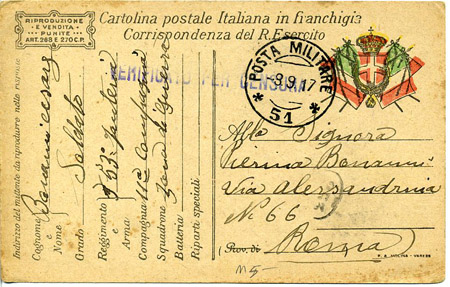 RIPRODUZIONE
E VENDITA
PUNITE
ART. 268 E 270 C.P.
Cartolina postale Italiana in franchigia
Corrispondenza del R. Esercito
VERIFICATO PER CENSURA
POSTA MILITARE
9.9.17
* 51 *
Alla Signora
Pierina Bonanni
Via Alessandrina
N° 66
(Prov. di Roma
Indirizzo del mittente da riprodurre nelle risposte
Cognome e Nome Bonanni
Grado Soldato
Reggimento e Arma Fanteria
Compagnia 11a Compagnia
Squadrone Zona di Guerra
Batteria
Riparti speciali